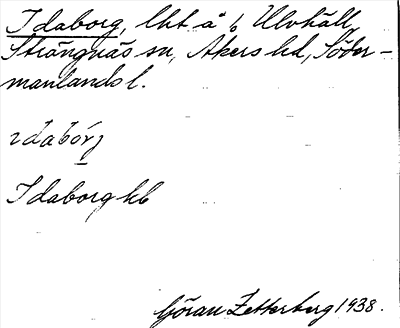 Idaborg, lht å 6 Ulvhäll,
Strängnäs sn, Åkers hd, Söder-
manlands l.
idabórj
Idaborg kb
Göran Zetterberg 1938.